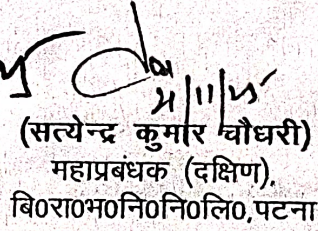 (सत्येन्द्र कुमार चौधरी)
महाप्रबंधक (दक्षिण),
बि0रा0भ0नि0नि0लि0,पटना